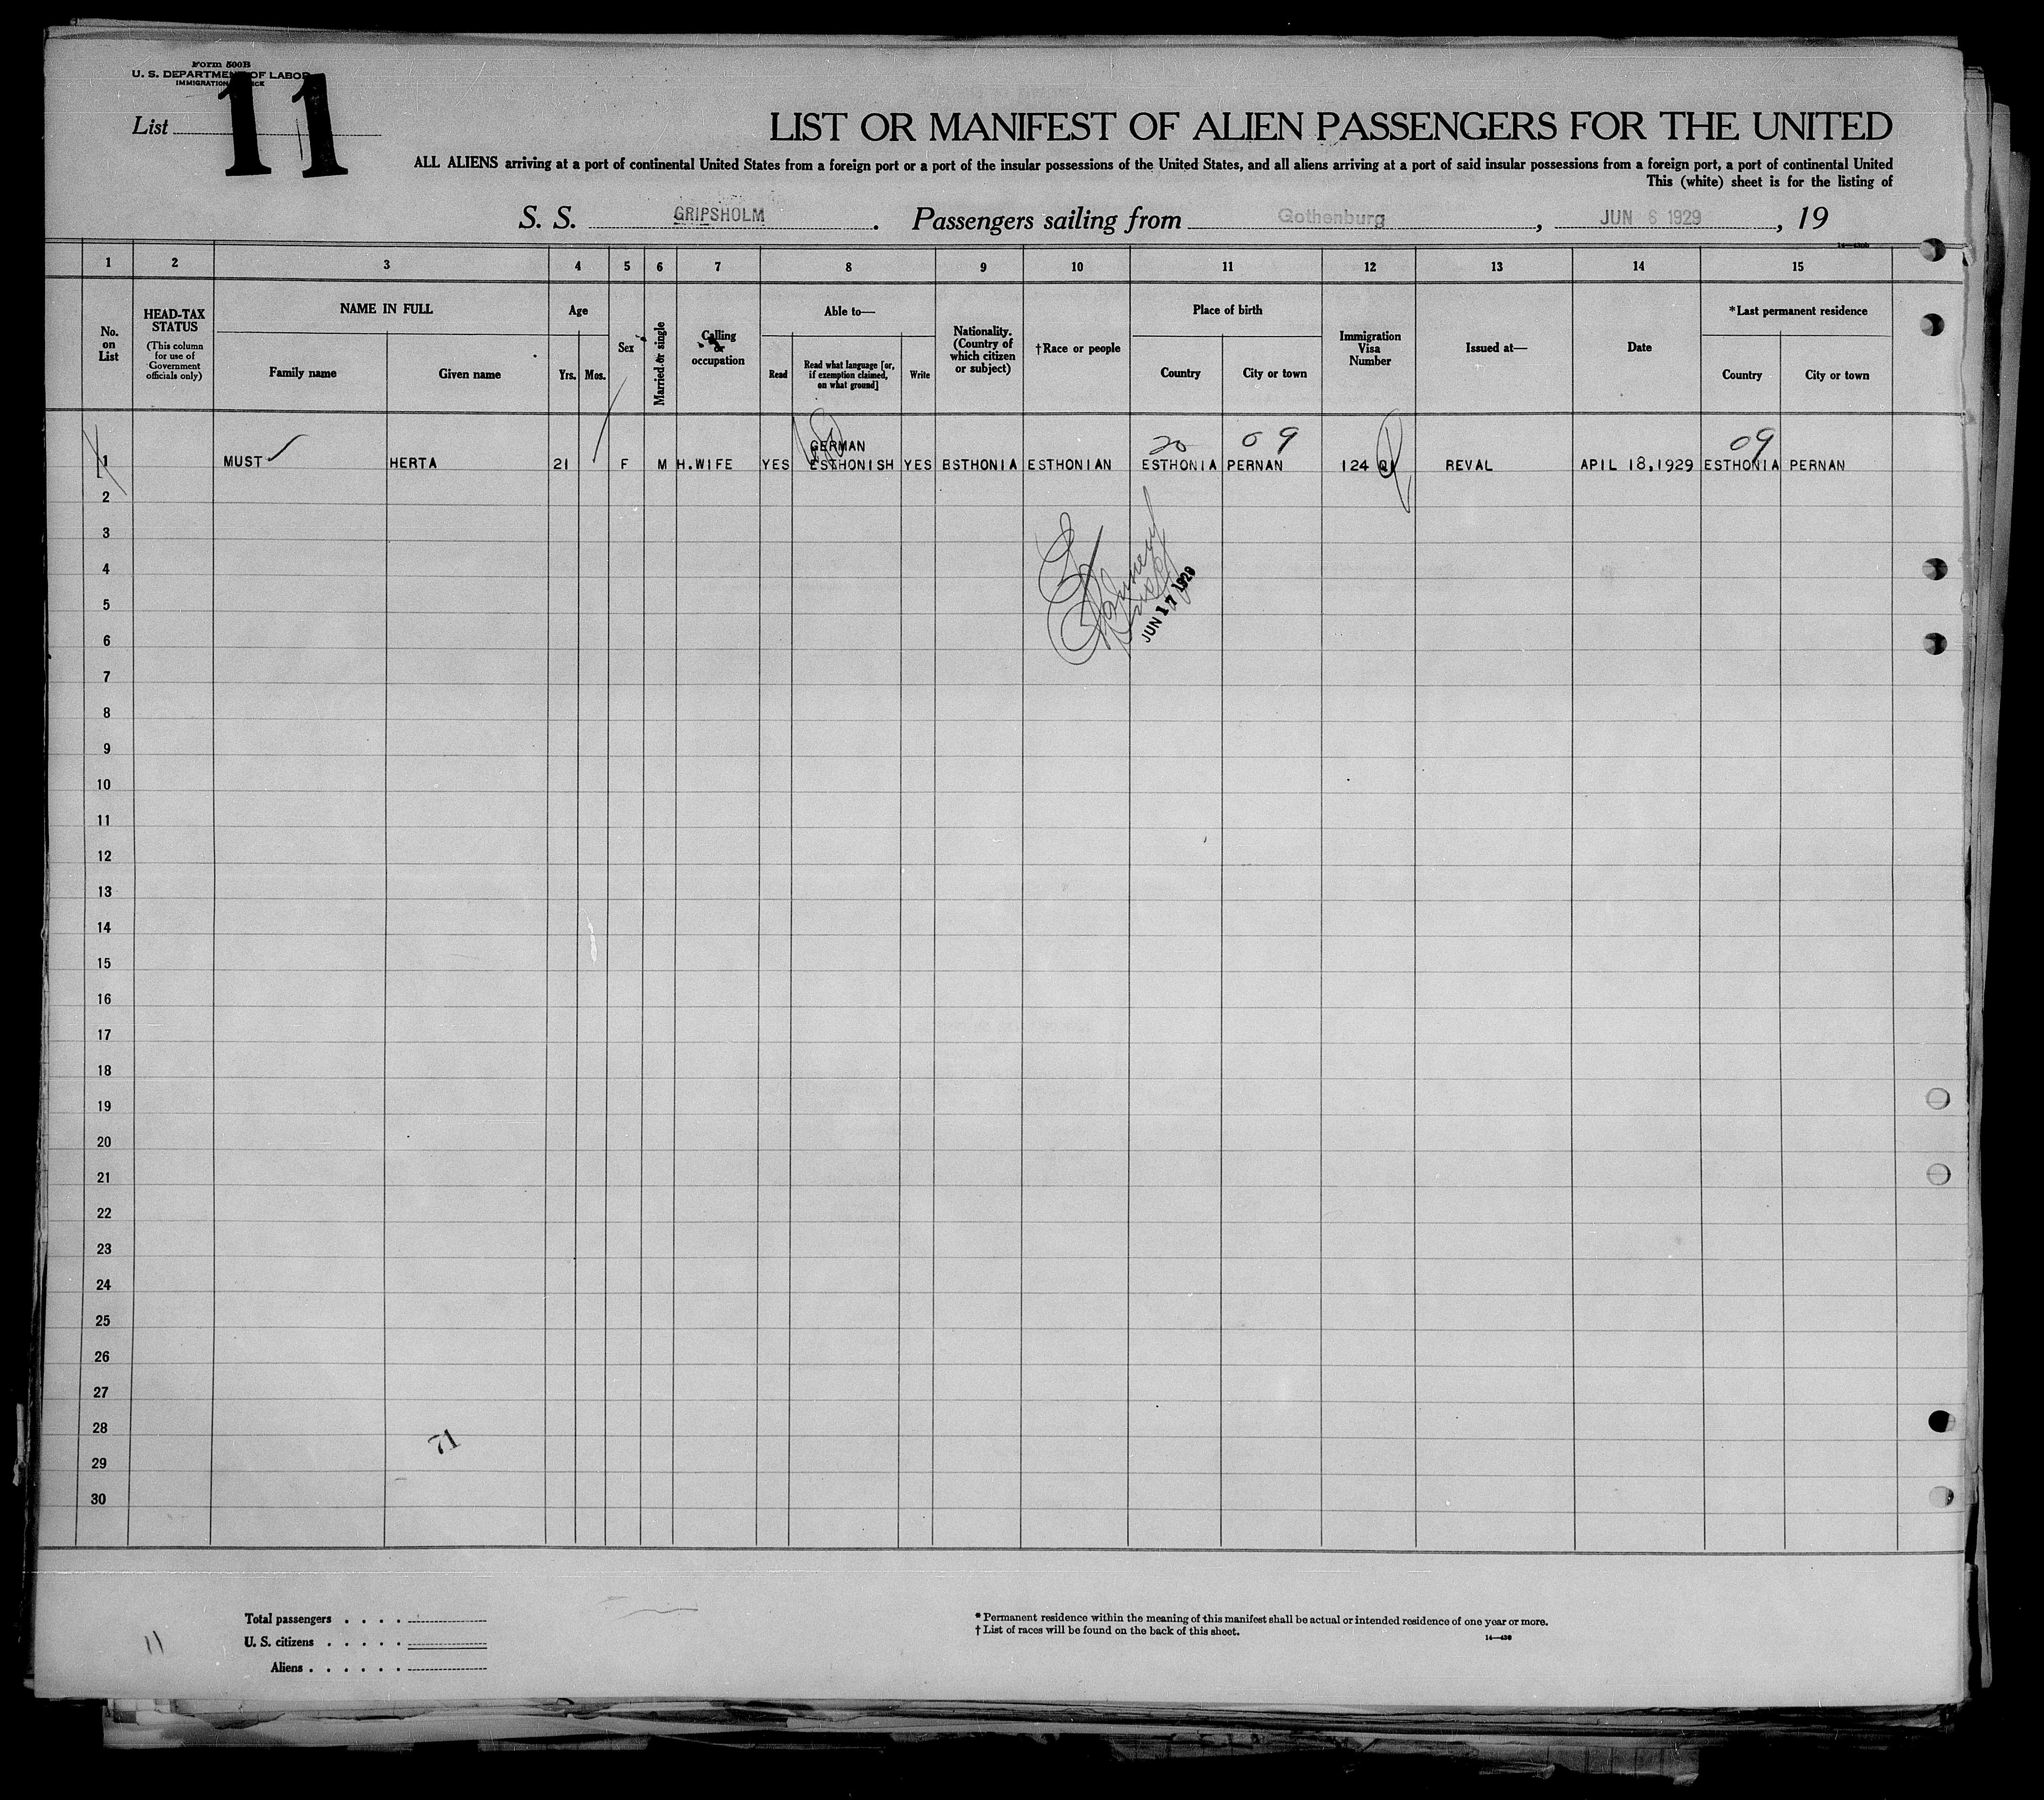 Form 500B
U. S. DEPARTMENT OF LABOR
IMMIGRATION
List 11
LIST OR MANIFEST OF ALIEN PASSENGERS FOR THE UNITED
ALL ALIENS arriving at a port of continental United States from a foreign port or a port of the insular possessions of the United States, and all aliens arriving at a port of said insular possessions from a foreign port, a port of continental United
This (white) sheet is for the listing of
S. S. GRIPSHOLM. Passengers sailing from Gothenburg, JUN 6 1929, 19
1 2 3 4 5 6 7 8 9 10 11 12 13 14 15
No. on List
HEAD-TAX STATUS
(This column for use of Government officials only)
NAME IN FULL
Family name
Given name
Age
Yrs. Mos.
Sex
Married or single
Calling or occupation
Able to—
Read
Read what language [or, if exemption claimed, on what ground]
Write
Nationality. (Country of which citizen or subject)
†Race or people
Place of birth
Country
City or town
Immigration Visa Number
Issued at—
Date
*Last permanent residence
Country
City or town
20 09 09
GERMAN
1 MUST HERTA 21 F M H.WIFE YES ESTHONISH YES BSTHONIA ESTHONIAN ESTHONIA PERNAN 124 REVAL APIL 18,1929 ESTHONIA PERNAN
2
3
JUN 17 1929
4
5
6
7
8
9
10
11
12
13
14
15
16
17
18
19
20
21
22
23
24
25
26
27
28
71
29
30
Total passengers . . . .
U. S. citizens . . . . .
Aliens . . . . . .
11
* Permanent residence within the meaning of this manifest shall be actual or intended residence of one year or more.
† List of races will be found on the back of this sheet.